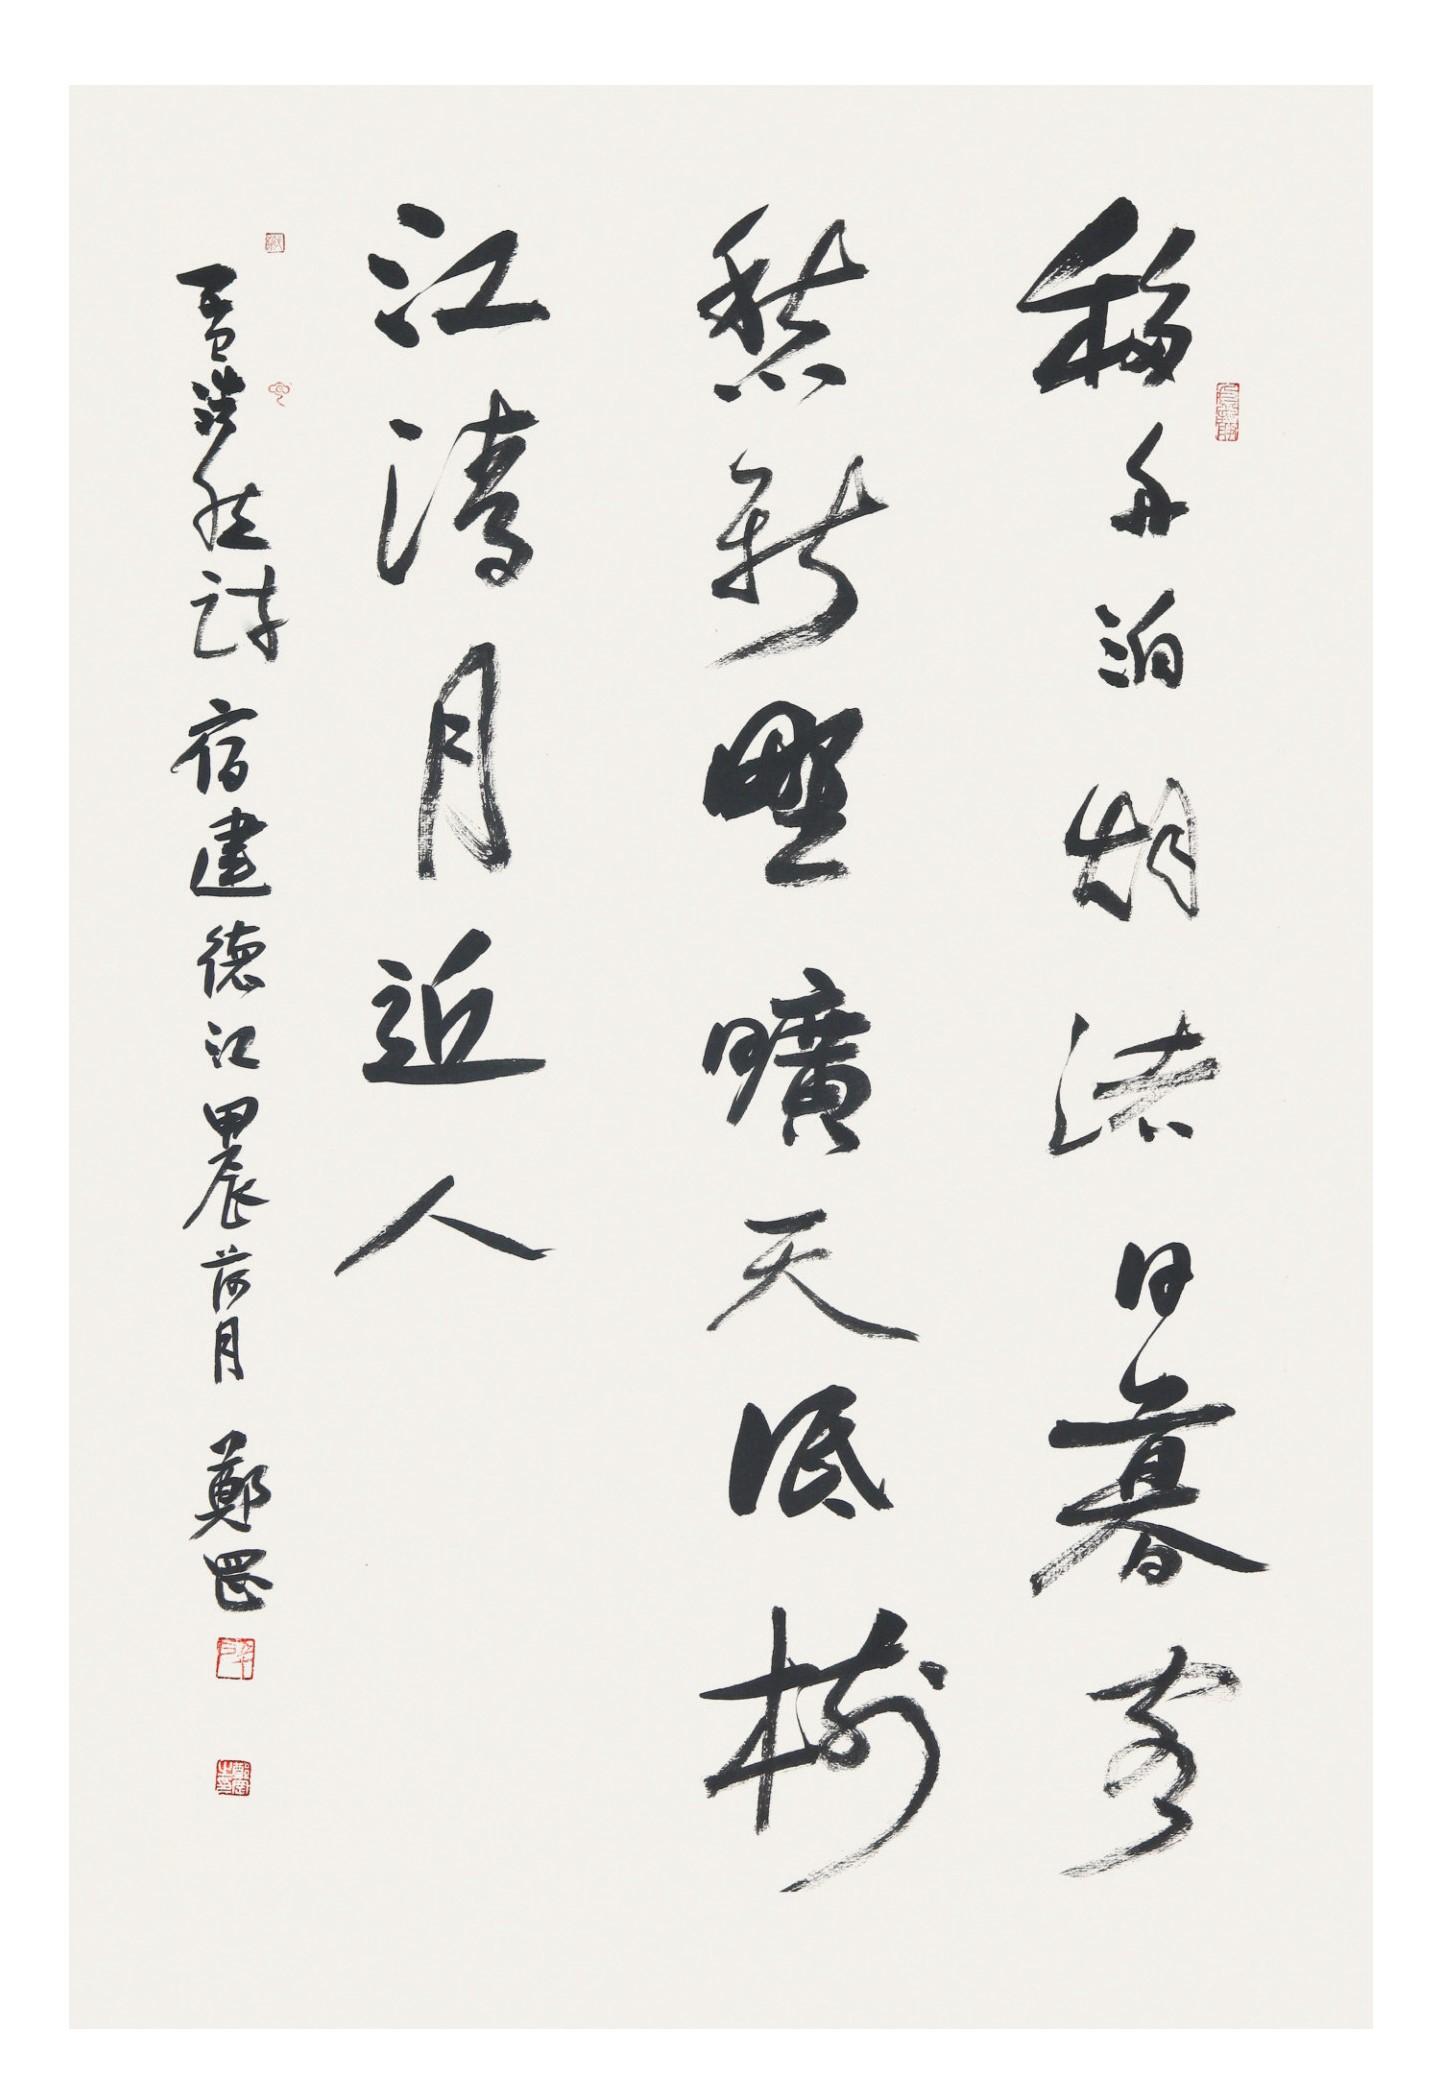 移舟泊烟渚日暮客
愁新野曠天低樹
江清月近人
孟浩然詩宿建德江甲辰荷月鄭罡